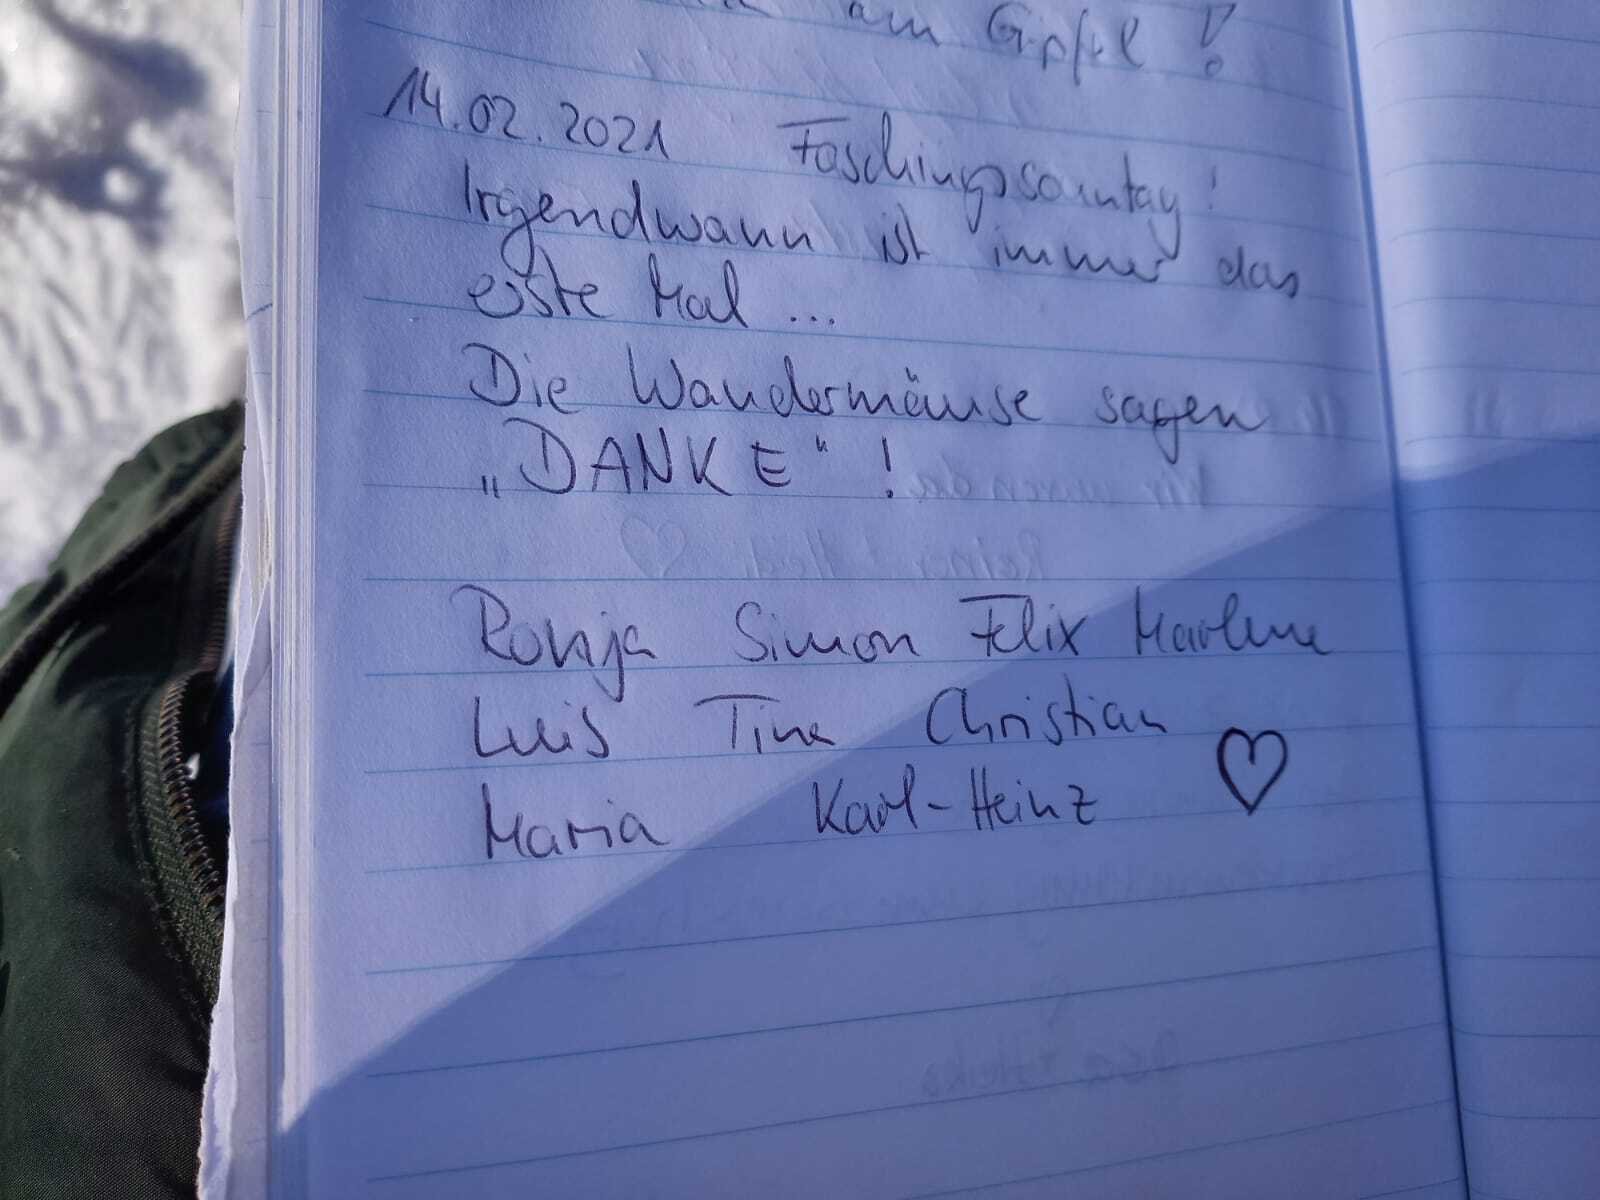 am Gipfel !
14.02.2021 Faschingssonntag !
Irgendwann ist immer das
erste Mal ...
Die Wandermäuse sagen
„DANKE“ !
Ronja Simon Felix Marlene
Luis Tina Christian
Maria Karl-Heinz ♡